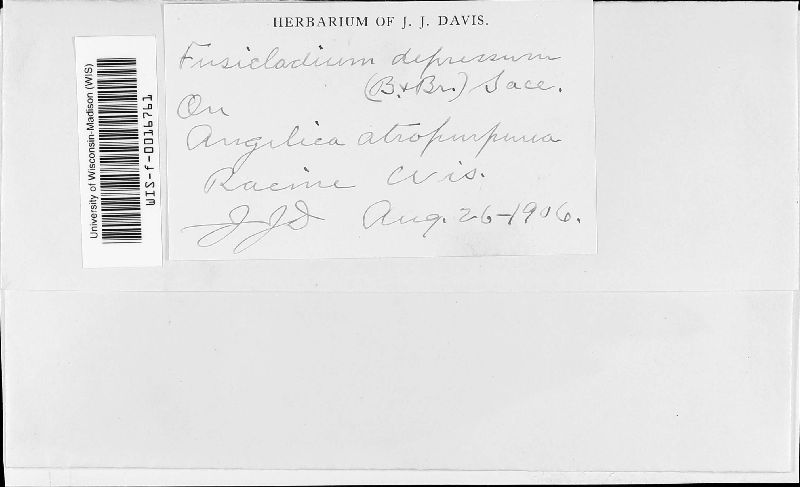 HERBARIUM OF J. J. DAVIS.
Fusicladium depressum
(B. & Br.) Sacc.
On
Angelica atropurpurea
Racine Wis.
JJD Aug. 26-1906.
University of Wisconsin-Madison (WIS)
WIS-f-0016761